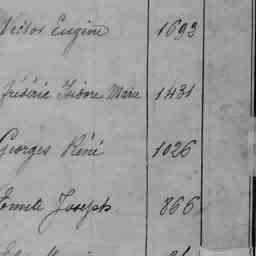 Victor Eugène 1693
Frédéric Isidore Marie 1431
Georges Réné 1026
Emile Joseph 866